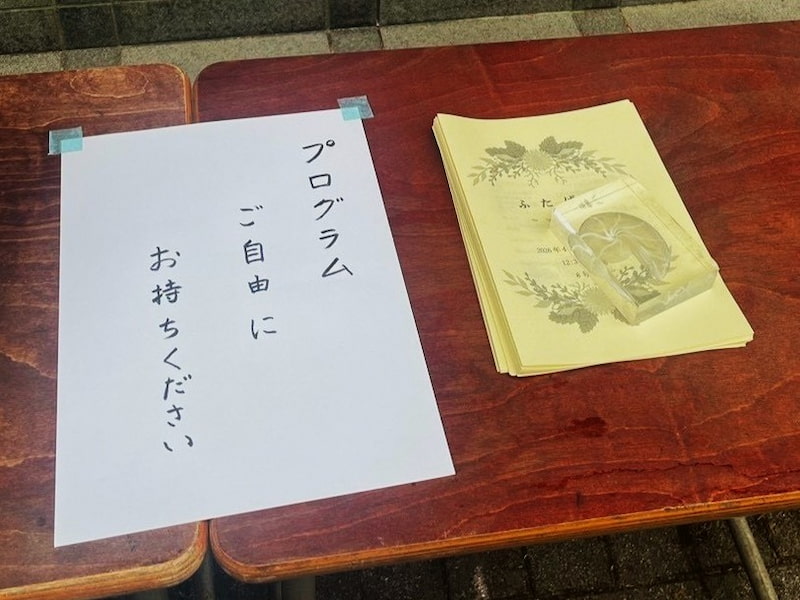 プログラム
ご自由に
お持ちください
ふたば
2026年4
12:
8